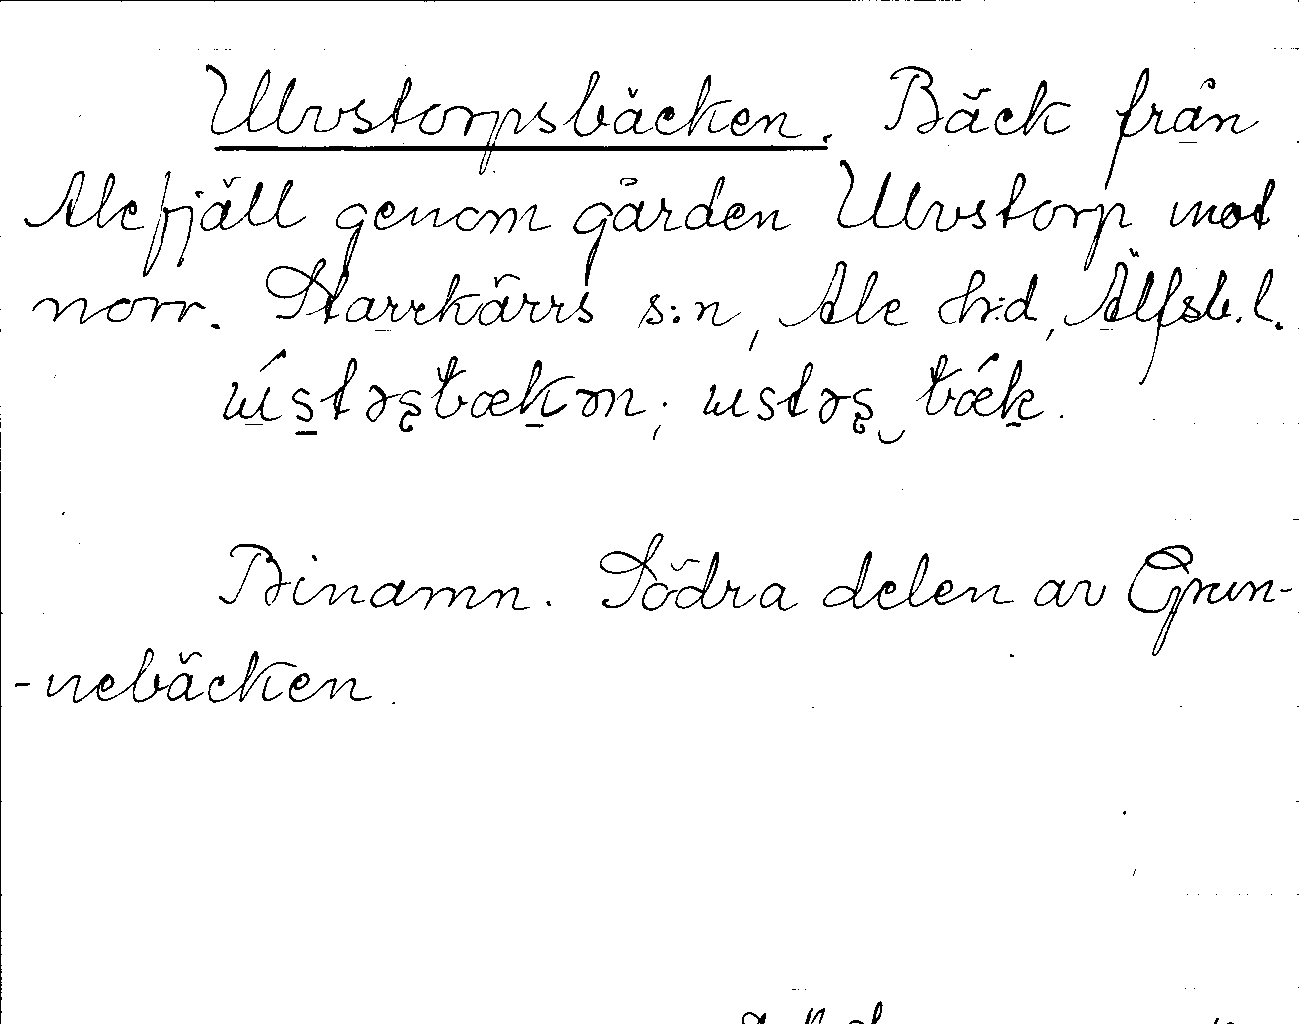 Ulvstorpsbäcken. Bäck från
Alefjäll genom gården Ulvstorp mot
norr. Starrkärrs s:n, Ale h:d, Älfsb. l.
Binamn. Södra delen av Grun-
-nebäcken.